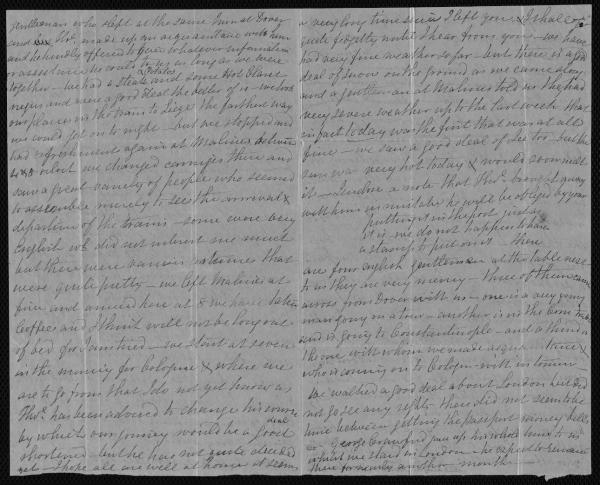 gentleman who slept at the same Inn at Dover
and Thos. made up an acquaintance with him
and he kindly offered to give whatever information
or assistance he could to us as long as we were
together — we had a steak and potatoes some Hot Claret
negus and were a good deal the better of it — we took
our places in the train to Liege the farthest way
we could get on to night — but we stopped and
had refreshment again at Malines between
4 & 5 oclock we changed carriages there and
saw a great variety of people who seemed
to assemble merely to see the arrival &
departure of the trains — some were very
English wh did not interest me much
but there were various costumes that
were quite pretty — we left Malines at
five and arrived here at 8 we have taken
Coffee and I think will not be long out
of bed for I am tired — we start at seven
in the morning for Cologne & where we
are to go from that I do not yet know as
Thos. has been advised to change his course
by which our journey would be a good deal
shortened but he has not quite decided
yet — I hope all are well at home it seems
a very long time since I left you & I shall
quite fidgetty until I hear from you — we have
had very fine weather so far — but there is a good
deal of snow on the ground as we came along
and a gentleman at Malines told us they had
very severe weather up to the last week that
in fact today was the first that was at all
fine — we saw a good deal of ice too — but the
sun was very hot today & would soon melt
it — I enclose a note that Thos. brought away
with him in mistake he will be obliged by your
putting it in the post
it is we do not happen to have
a stamp to put on it — there
are four English gentlemen at the table next
to us they are very merry — three of them came
across from Dover with us — one is a very young
man going on a tour — another is in the
and is going to Constantinople — and a third is
the one with whom we made acqu
who is coming on to Cologne with us tomorrow
we walked a good deal about London but did
not go see any sights there did not seem to be
time between getting the passport money bills
George Crawford gave up his whole time to us
whilst we staid in London — he expects to remain
there for nearly another month